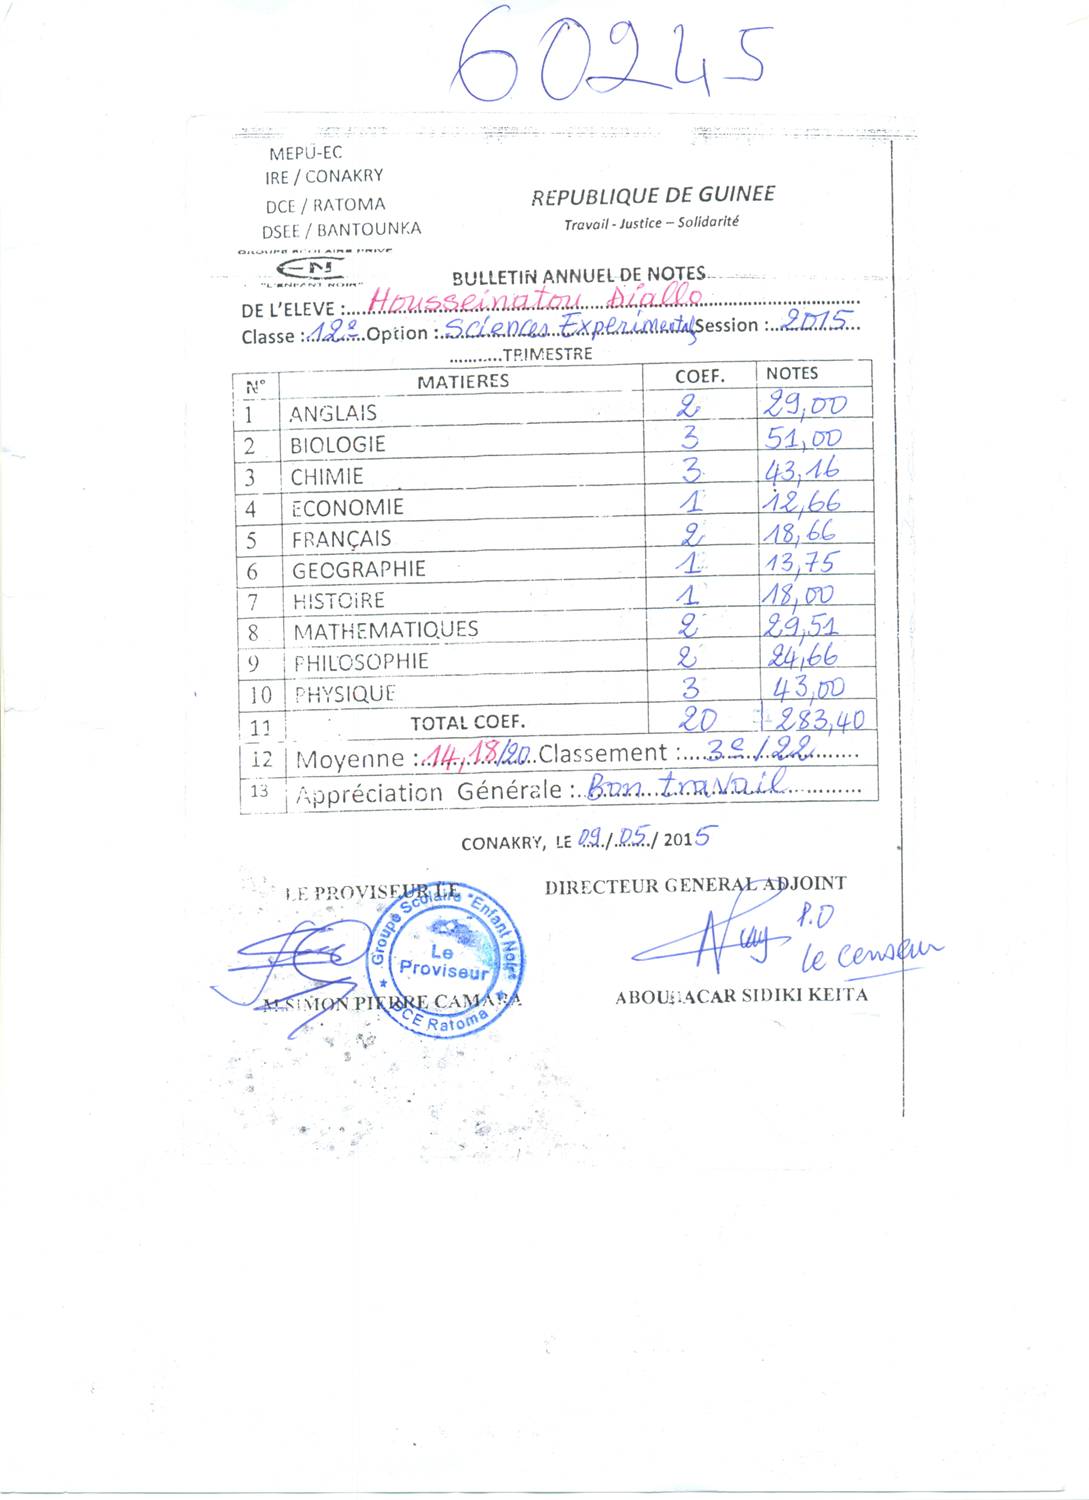 60245
MEPU-EC
IRE / CONAKRY
DCE / RATOMA
DSEE / BANTOUNKA
REPUBLIQUE DE GUINEE
Travail - Justice – Solidarité
GROUPE SCOLAIRE PRIVE
EN
"L'ENFANT NOIR"
BULLETIN ANNUEL DE NOTES
DE L'ELEVE : Housseinatou Diallo
Classe : 12e Option : Sciences Expérimentales Session : 2015
...........TRIMESTRE
N° MATIERES COEF. NOTES
1 ANGLAIS 2 29,00
2 BIOLOGIE 3 51,00
3 CHIMIE 3 43,16
4 ECONOMIE 1 12,66
5 FRANÇAIS 2 18,66
6 GEOGRAPHIE 1 13,75
7 HISTOIRE 1 18,00
8 MATHEMATIQUES 2 29,51
9 PHILOSOPHIE 2 24,66
10 PHYSIQUE 3 43,00
11 TOTAL COEF. 20 283,40
12 Moyenne : 14,18/20 Classement : 3e/22
13 Appréciation Générale : Bon travail
CONAKRY, LE 09/05/2015
LE PROVISEUR LE DIRECTEUR GENERAL ADJOINT
Groupe Scolaire "Enfant Noir"
Le
Proviseur
DCE Ratoma
P.O
le censeur
M.SIMON PIERRE CAMARA
ABOUBACAR SIDIKI KEITA